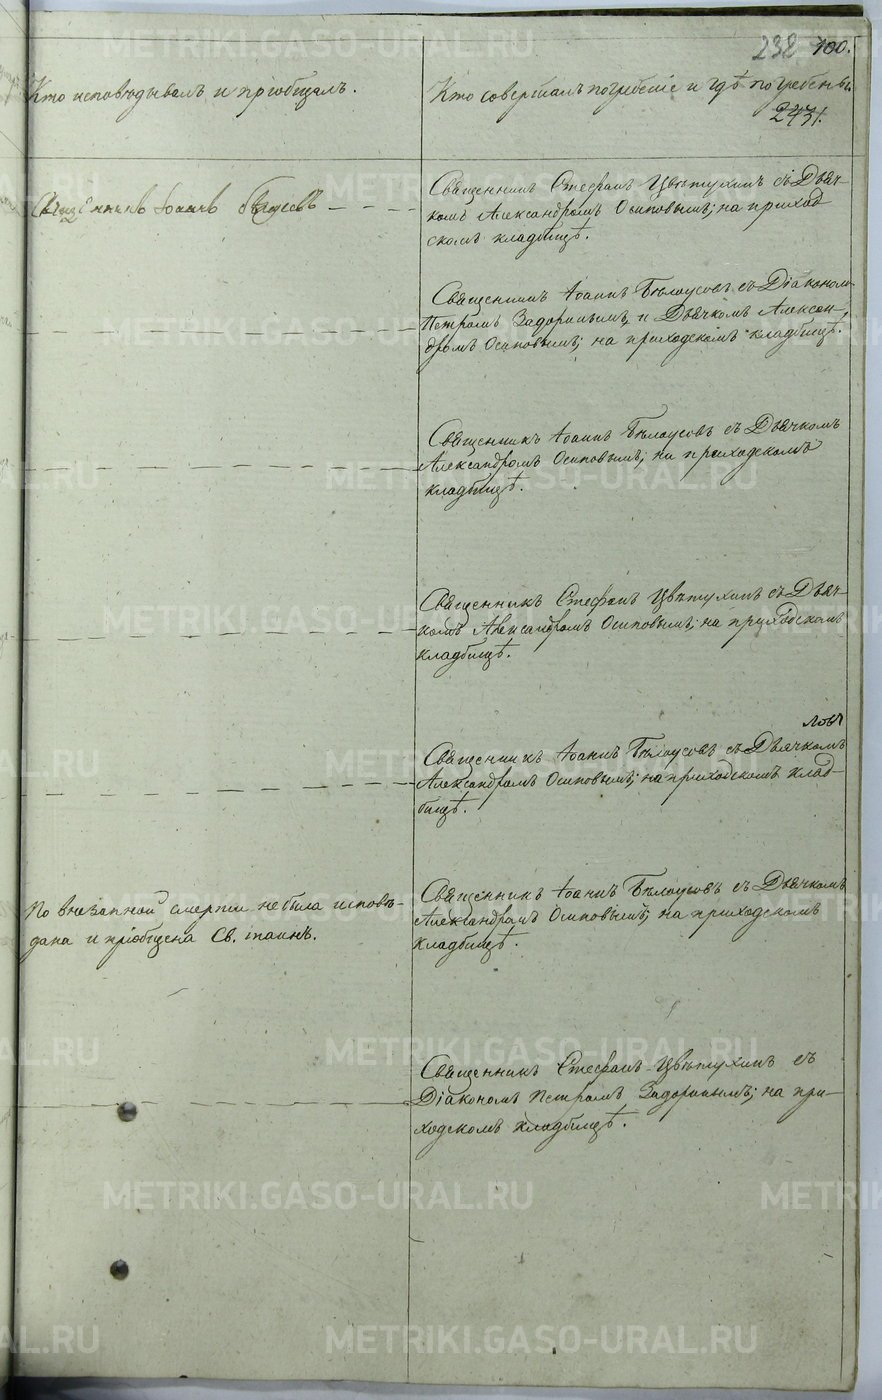 238 100.
Кто исповѣдывалъ и пріобщалъ.
Кто совершалъ погребеніе и гдѣ погребены.
2431.
Священникъ Іоаннъ
Священникъ Стефанъ Цвѣтухинъ съ Дьяч-
комъ Александромъ Осиповымъ; на приход
скомъ кладбищѣ.
Священникъ Іоаннъ Бѣлоусовъ съ Діакономъ
Петромъ Задоринымъ, и Дьячкомъ Алексан-
дромъ Осиповымъ; на приходскомъ кладбищѣ.
Священникъ Іоаннъ Бѣлоусовъ съ Дьячкомъ
Александромъ Осиповымъ; на приходскомъ
кладбищѣ.
Священникъ Стефанъ Цвѣтухинъ съ Дьяч-
комъ Александромъ Осиповымъ; на приходскомъ
кладбищѣ.
Священникъ Іоаннъ Бѣлоусовъ съ Дьячкомъ
Александромъ Осиповымъ; на приходскомъ клад-
бищѣ.
По внезапной смерти не была исповѣ-
дана и пріобщена Св. таинъ.
Священникъ Іоаннъ Бѣлоусовъ съ Дьячкомъ
Александромъ Осиповымъ; на приходскомъ
кладбищѣ.
Священникъ Стефанъ Цвѣтухинъ съ
Діакономъ Петромъ Задоринымъ; на при-
ходскомъ кладбищѣ.
METRIKI.GASO-URAL.RU